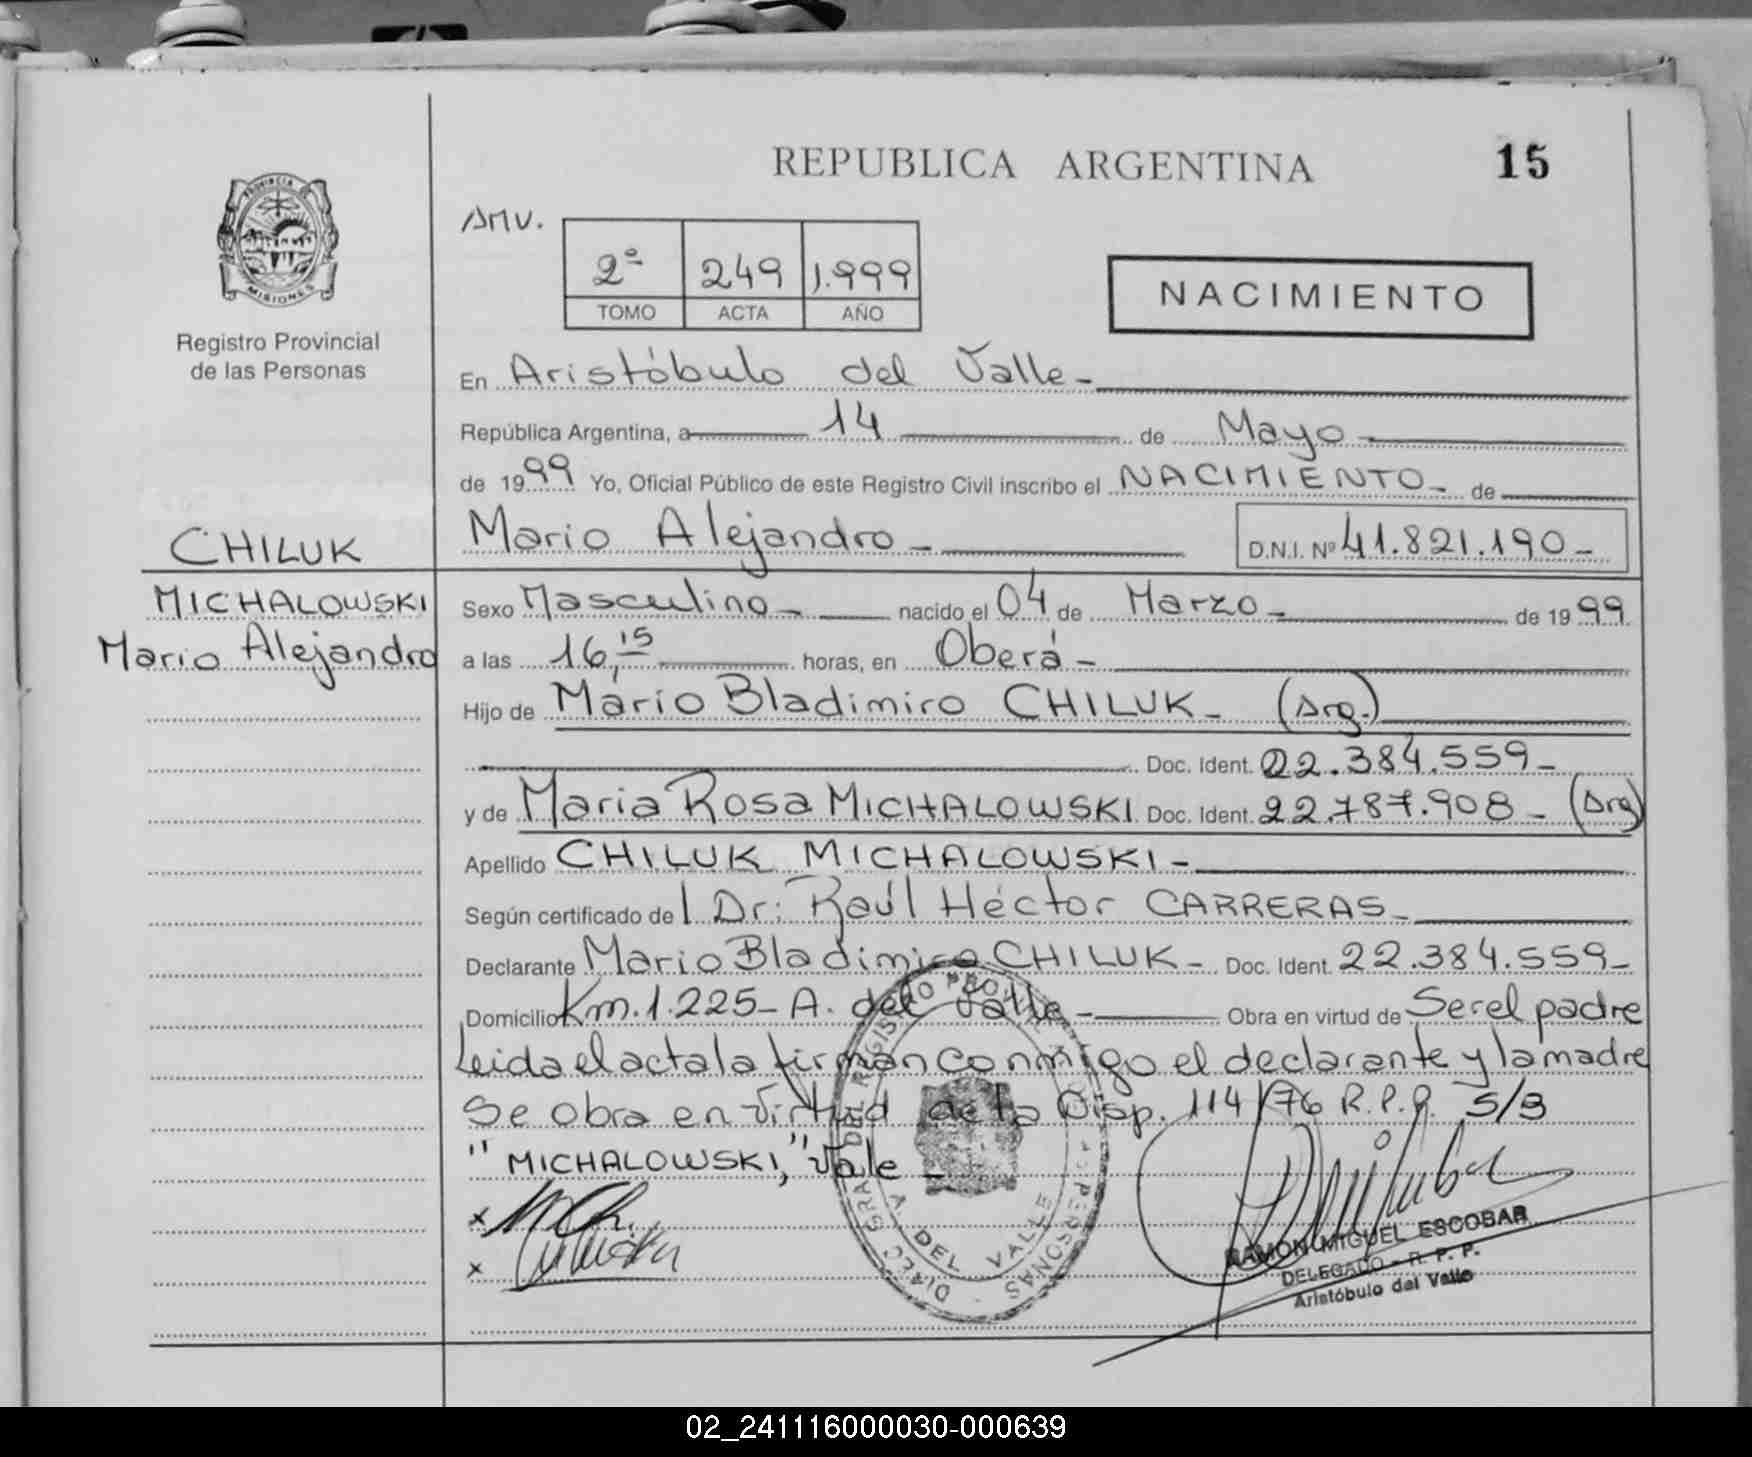 REPUBLICA ARGENTINA
15
PROVINCIA DE
MISIONES
Registro Provincial
de las Personas
AMV.
2º 249 1.999
TOMO ACTA AÑO
NACIMIENTO
En Aristóbulo del Valle-
República Argentina, a 14 de Mayo
de 1999 Yo, Oficial Público de este Registro Civil inscribo el NACIMIENTO- de
CHILUK
Mario Alejandro-
D.N.I. Nº 41.821.190-
MICHALOWSKI
Mario Alejandro
Sexo Masculino- nacido el 04 de Marzo- de 1999
a las 16,15 horas, en Oberá-
Hijo de Mário Bladimiro CHILUK- (Arg.)
Doc. Ident. 22.384.559-
y de Maria Rosa MICHALOWSKI Doc. Ident. 22.787.908- (Arg)
Apellido CHILUK MICHALOWSKI-
Según certificado del Dr: Raúl Héctor CARRERAS-
Declarante Mario Bladimiro CHILUK- Doc. Ident. 22.384.559-
Domicilio Km.1.225- A. del Valle- Obra en virtud de Ser el padre
Leida el acta la firman conmigo el declarante y la madre
Se obra en virtud de la Disp. 114/76 R.P.P. S/B
"MICHALOWSKI," Vale-
x
x
DEL VALLE
RAMON MIGUEL ESCOBAR
DELEGADO - R. P. P.
Aristóbulo del Valle
02_241116000030-000639